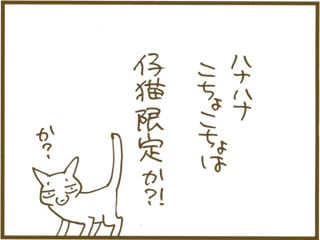 ハナハナ
こちょこちょは
仔猫限定か?!
か?